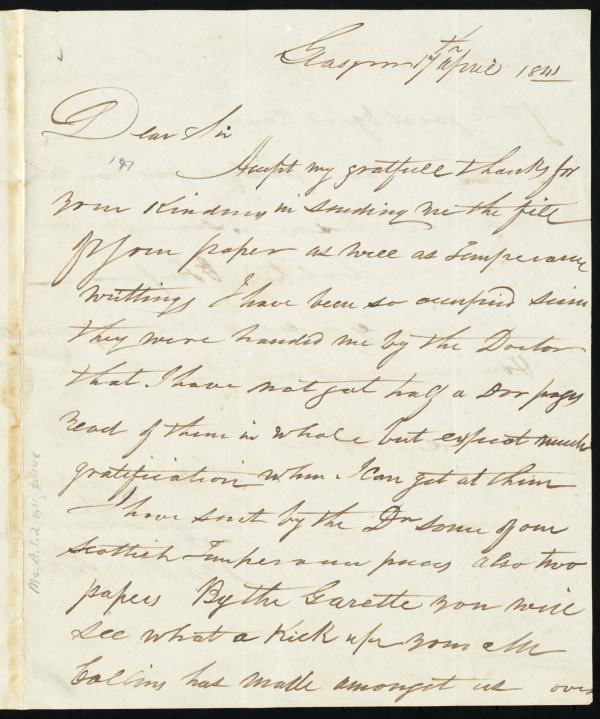 Glasgow 17th April 1841
Dear Sir
Accept my gratfull thanks for
your Kindness in sending me the file
of your paper as well as Temperance
writtings I have been so occupied since
they were handed me by the Doctor
that I have not got half a Doz pages
read of them in whole but expect much
gratification when I can get at them
I have sent by the Dr some of our
Scottish Temperance pieces also two
papers By the Gazette you will
see what a Kick up your Mr
Collins has made amongst us over
187
Ms.A.1.2 v.11, p.